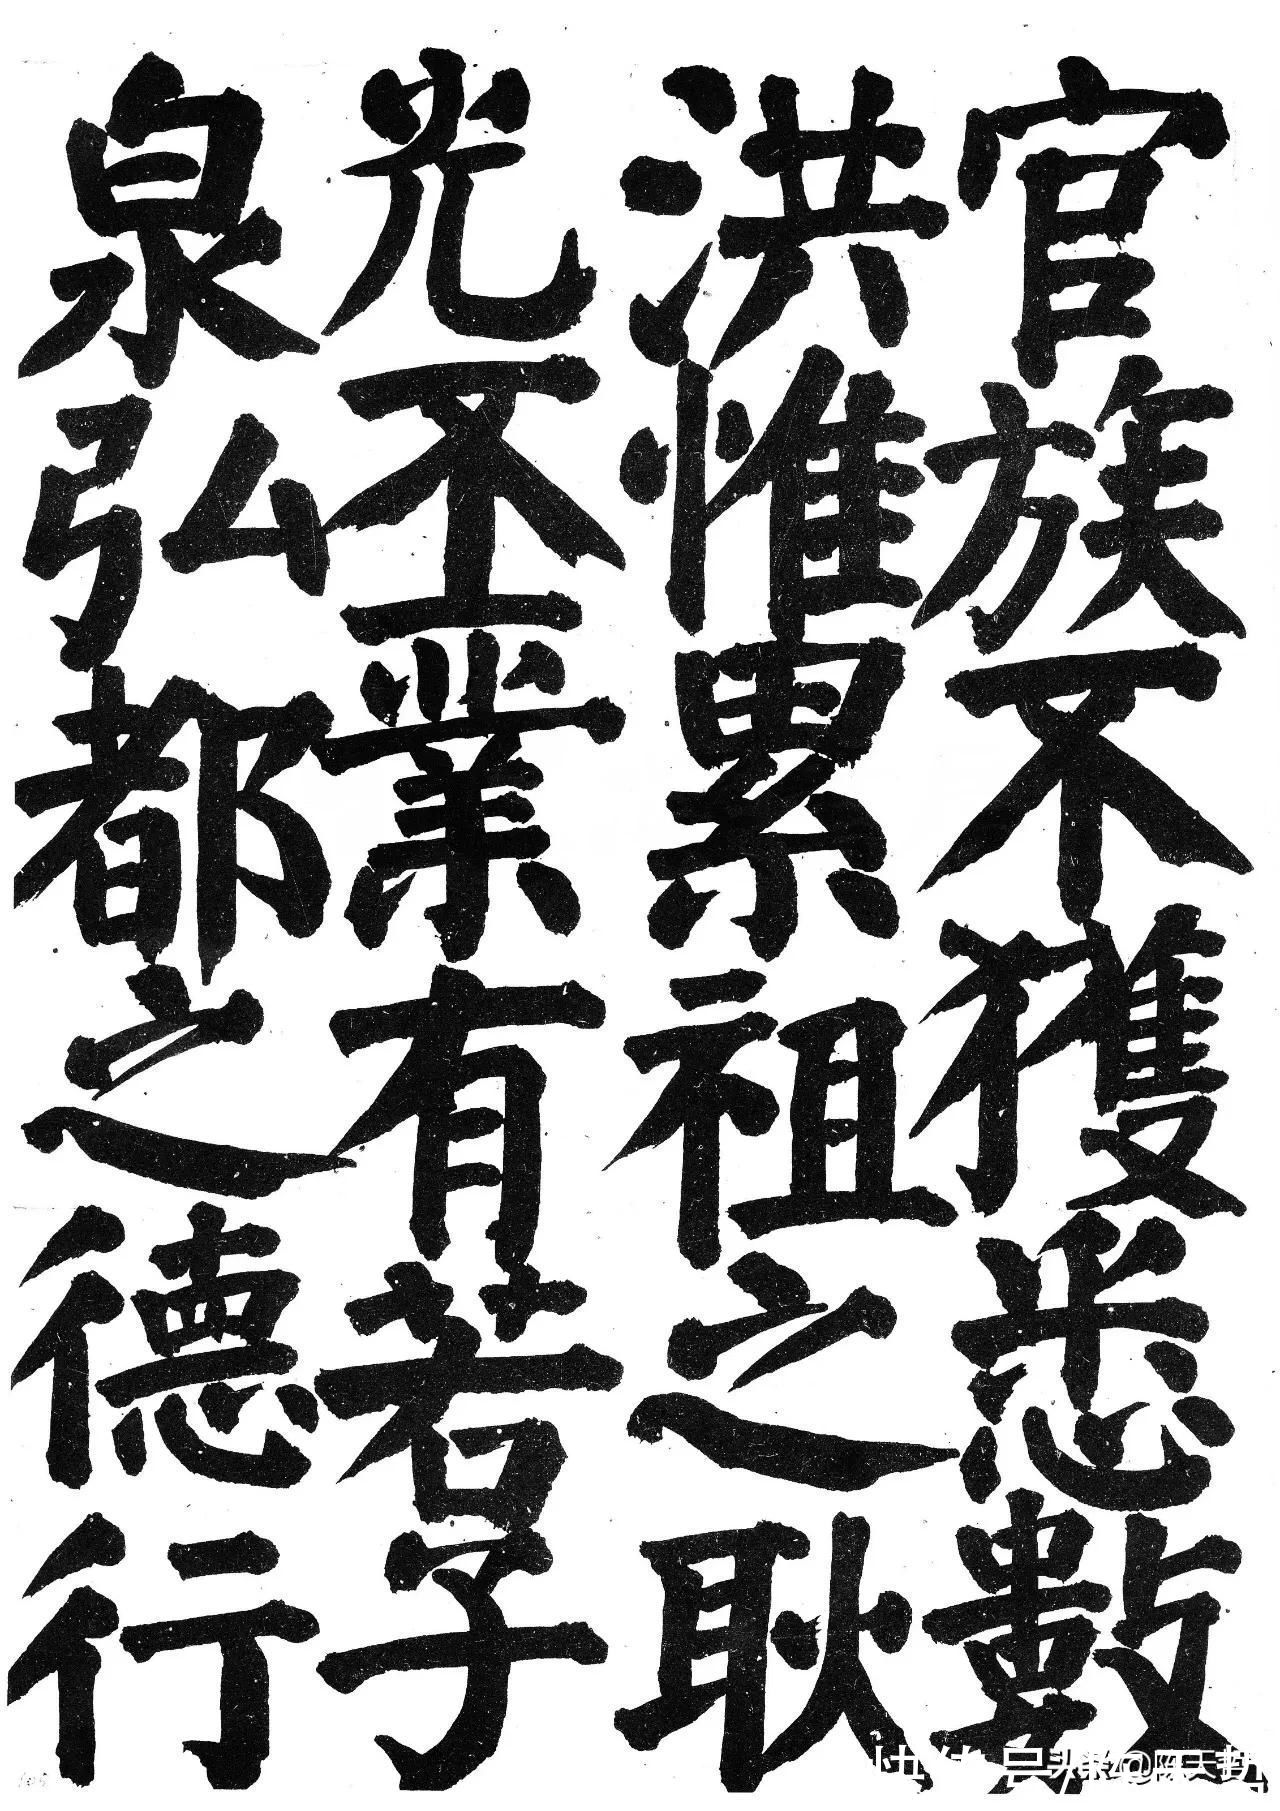 官族不獲悉數
洪惟累祖之耿
光丕業有若子
泉弘都之德行
头条@陈天